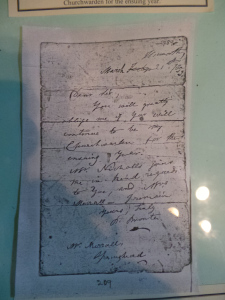 Churchwarden for the ensuing year
Dear Sir,
You will greatly
oblige me if you will
continue to be my
Churchwarden for the
ensuing year.
Mr. Nicholls joins
me in kind regards
to you, and Mrs
Yours Truly
P. Brontë
Mr.
289